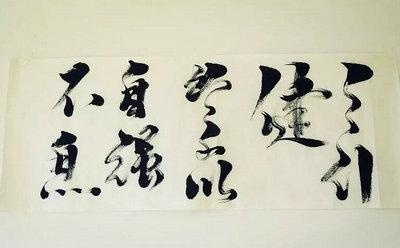 天行
健
君子以
自强
不息